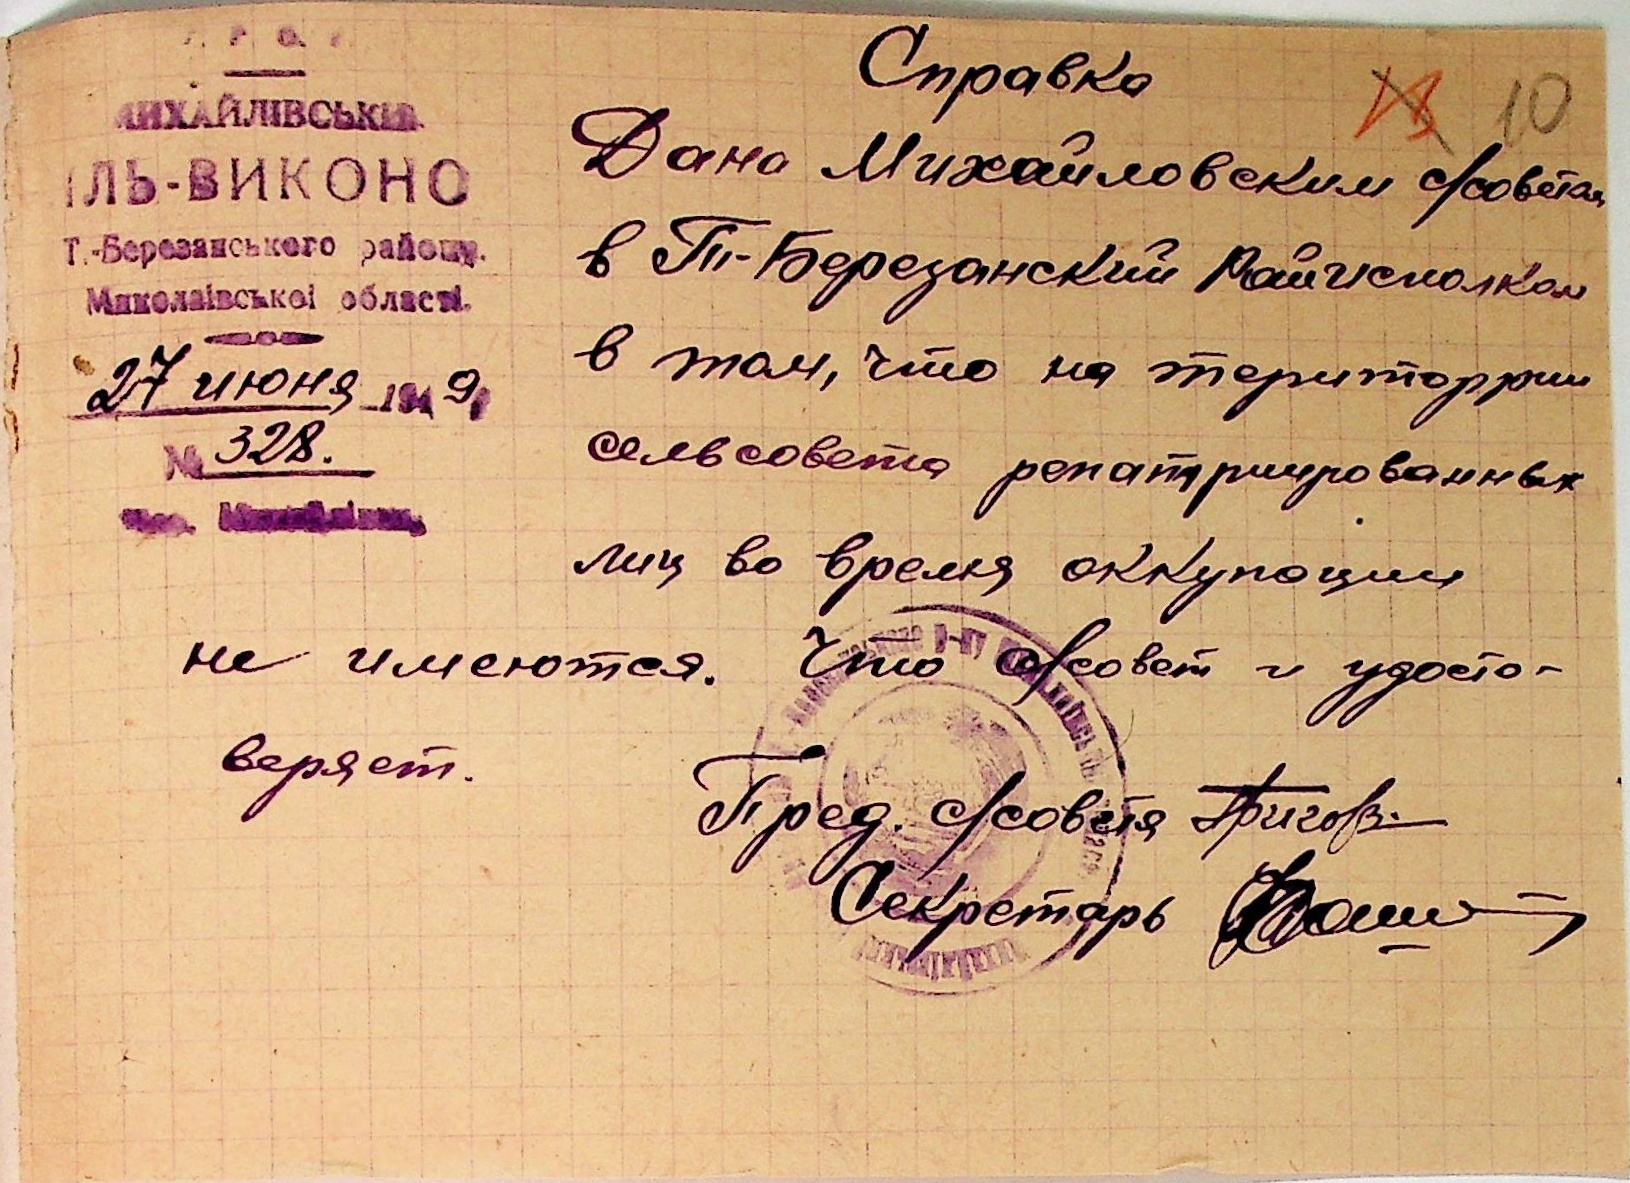 Справка
10
У. Р. С. Р.
МИХАЙЛІВСЬКИЙ
СІЛЬ-ВИКОНОМ
Т.-Березанського району,
Миколаївської області.
27 июня 1949
№ 328.
Дана Михайловским с/советам
в Т-Березанский Райисполком
в том, что на територрии
сельсовета репатриированных
лиц во время оккупации
не имеются. Что с/совет и удосто-
веряет.
Пред. с/совета
Секретарь